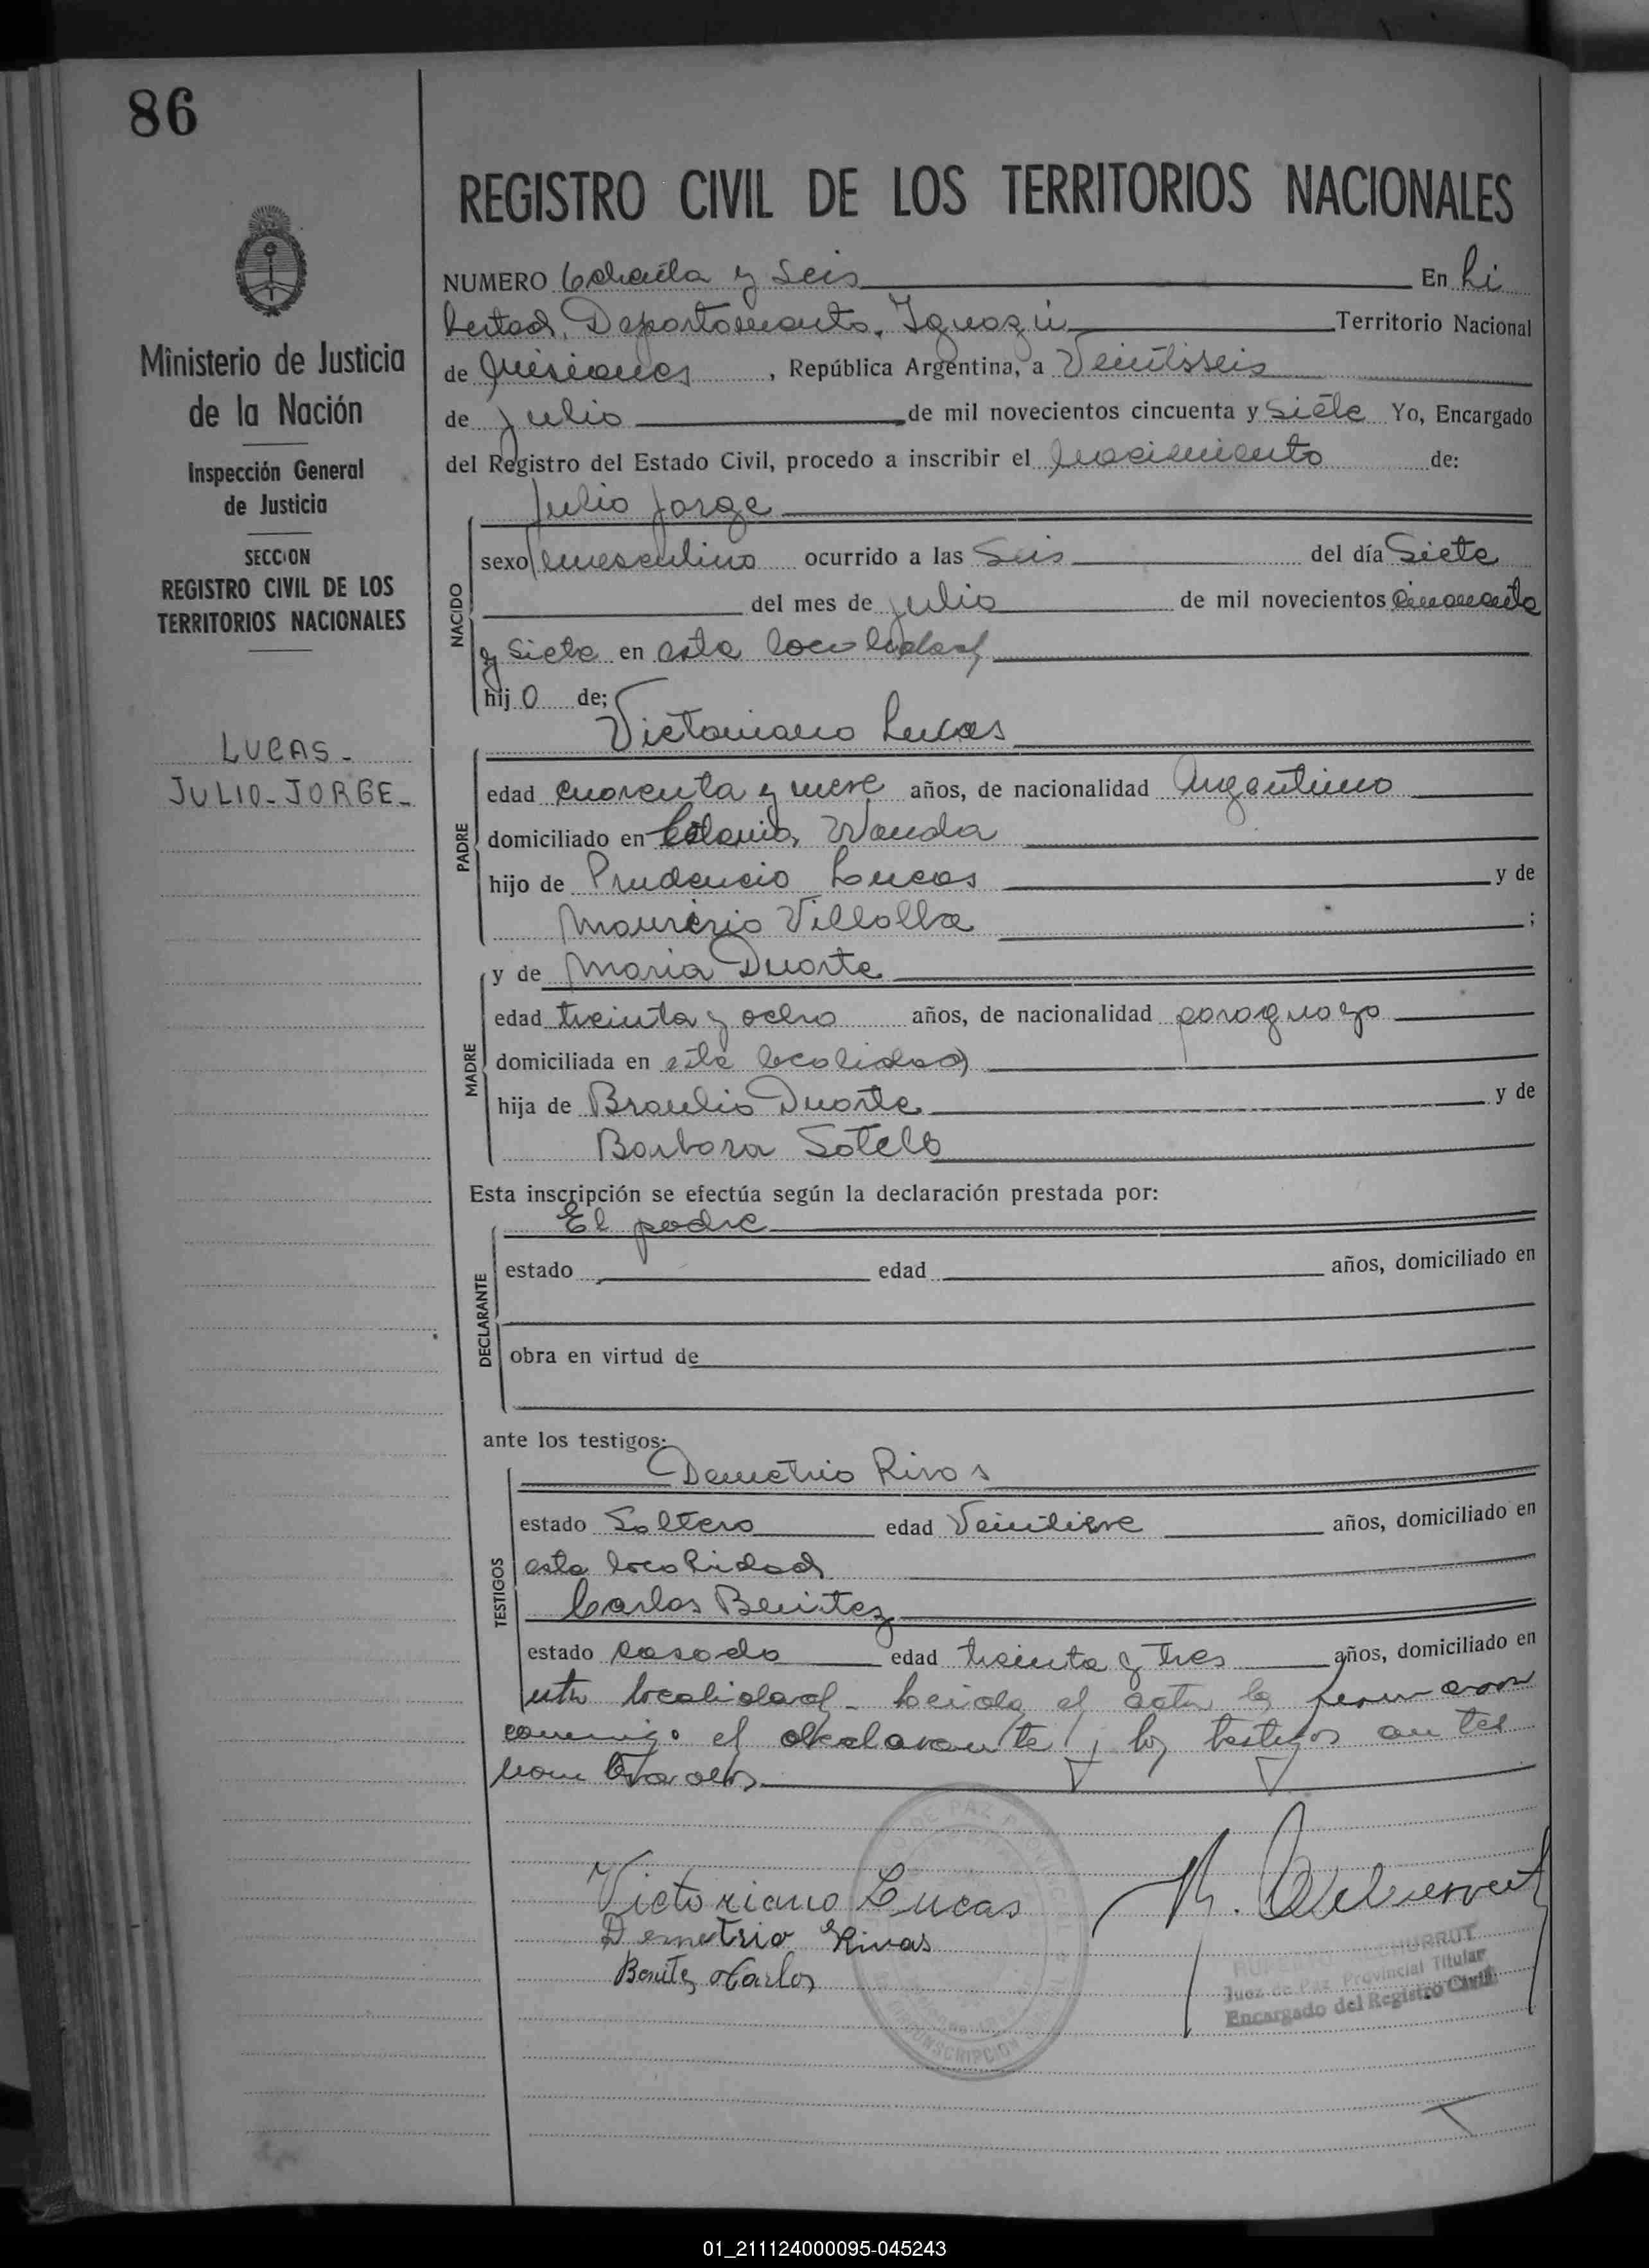 86
REGISTRO CIVIL DE LOS TERRITORIOS NACIONALES
Ministerio de Justicia
de la Nación
Inspección General
de Justicia
SECCION
REGISTRO CIVIL DE LOS
TERRITORIOS NACIONALES
LUCAS-
JULIO-JORGE-
NUMERO Ochenta y Seis En Li
bertad, Departamento, Iguazú Territorio Nacional
de Misiones, República Argentina, a Veintisseis
de Julio de mil novecientos cincuenta y Siete Yo, Encargado
del Registro del Estado Civil, procedo a inscribir el nacimiento de:
NACIDO
Julio Jorge
sexo masculino ocurrido a las Seis del día Siete
del mes de Julio de mil novecientos cincuenta
y Siete en esta localidad
hijo de;
PADRE
Victoriano Lucas
edad cuarenta y nueve años, de nacionalidad Argentino
domiciliado en Colonia Wanda
hijo de Prudencio Lucas y de
Mauricia Villalba ;
MADRE
y de Maria Duarte
edad treinta y ocho años, de nacionalidad paraguaya
domiciliada en esta localidad
hija de Braulio Duarte y de
Barbara Sotelo
Esta inscripción se efectúa según la declaración prestada por:
DECLARANTE
El padre
estado edad años, domiciliado en
obra en virtud de
ante los testigos:
TESTIGOS
Demetrio Rivas
estado Soltero edad años, domiciliado en
esta localidad
Carlos Benitez
estado casado edad treinta y tres años, domiciliado en
esta localidad - Leida el acta la firmaron
conmigo el declarante y los testigos antes
nombrados
Victoriano Lucas
Demetrio Rivas
Benitez Carlos
Juez de Paz Provincial Titular
Encargado del Registro Civil
01_211124000095-045243